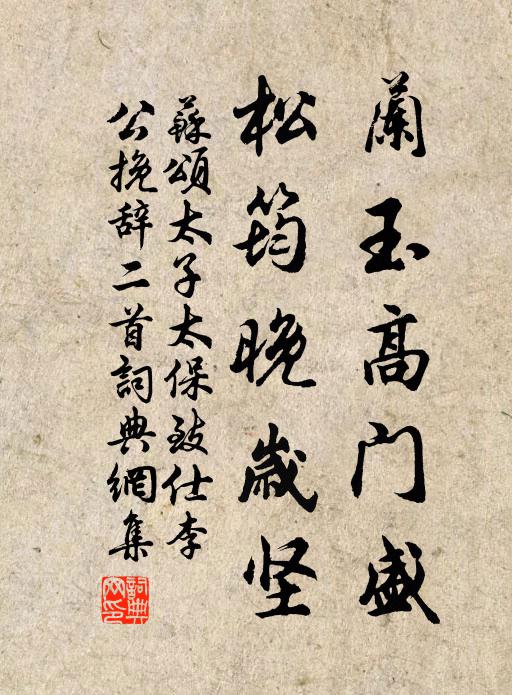 蘭玉高门盛
松筠晚歲坚
蘇頌太子太保致仕李
公挽辞二首詞典網集
詞典网印